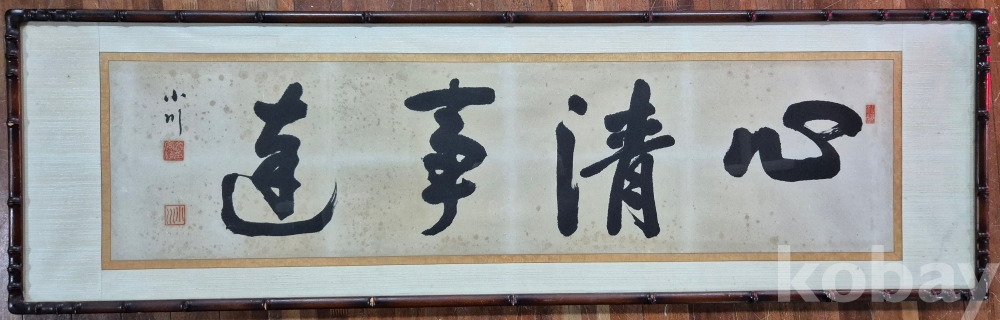 心清事達
小川
kobay